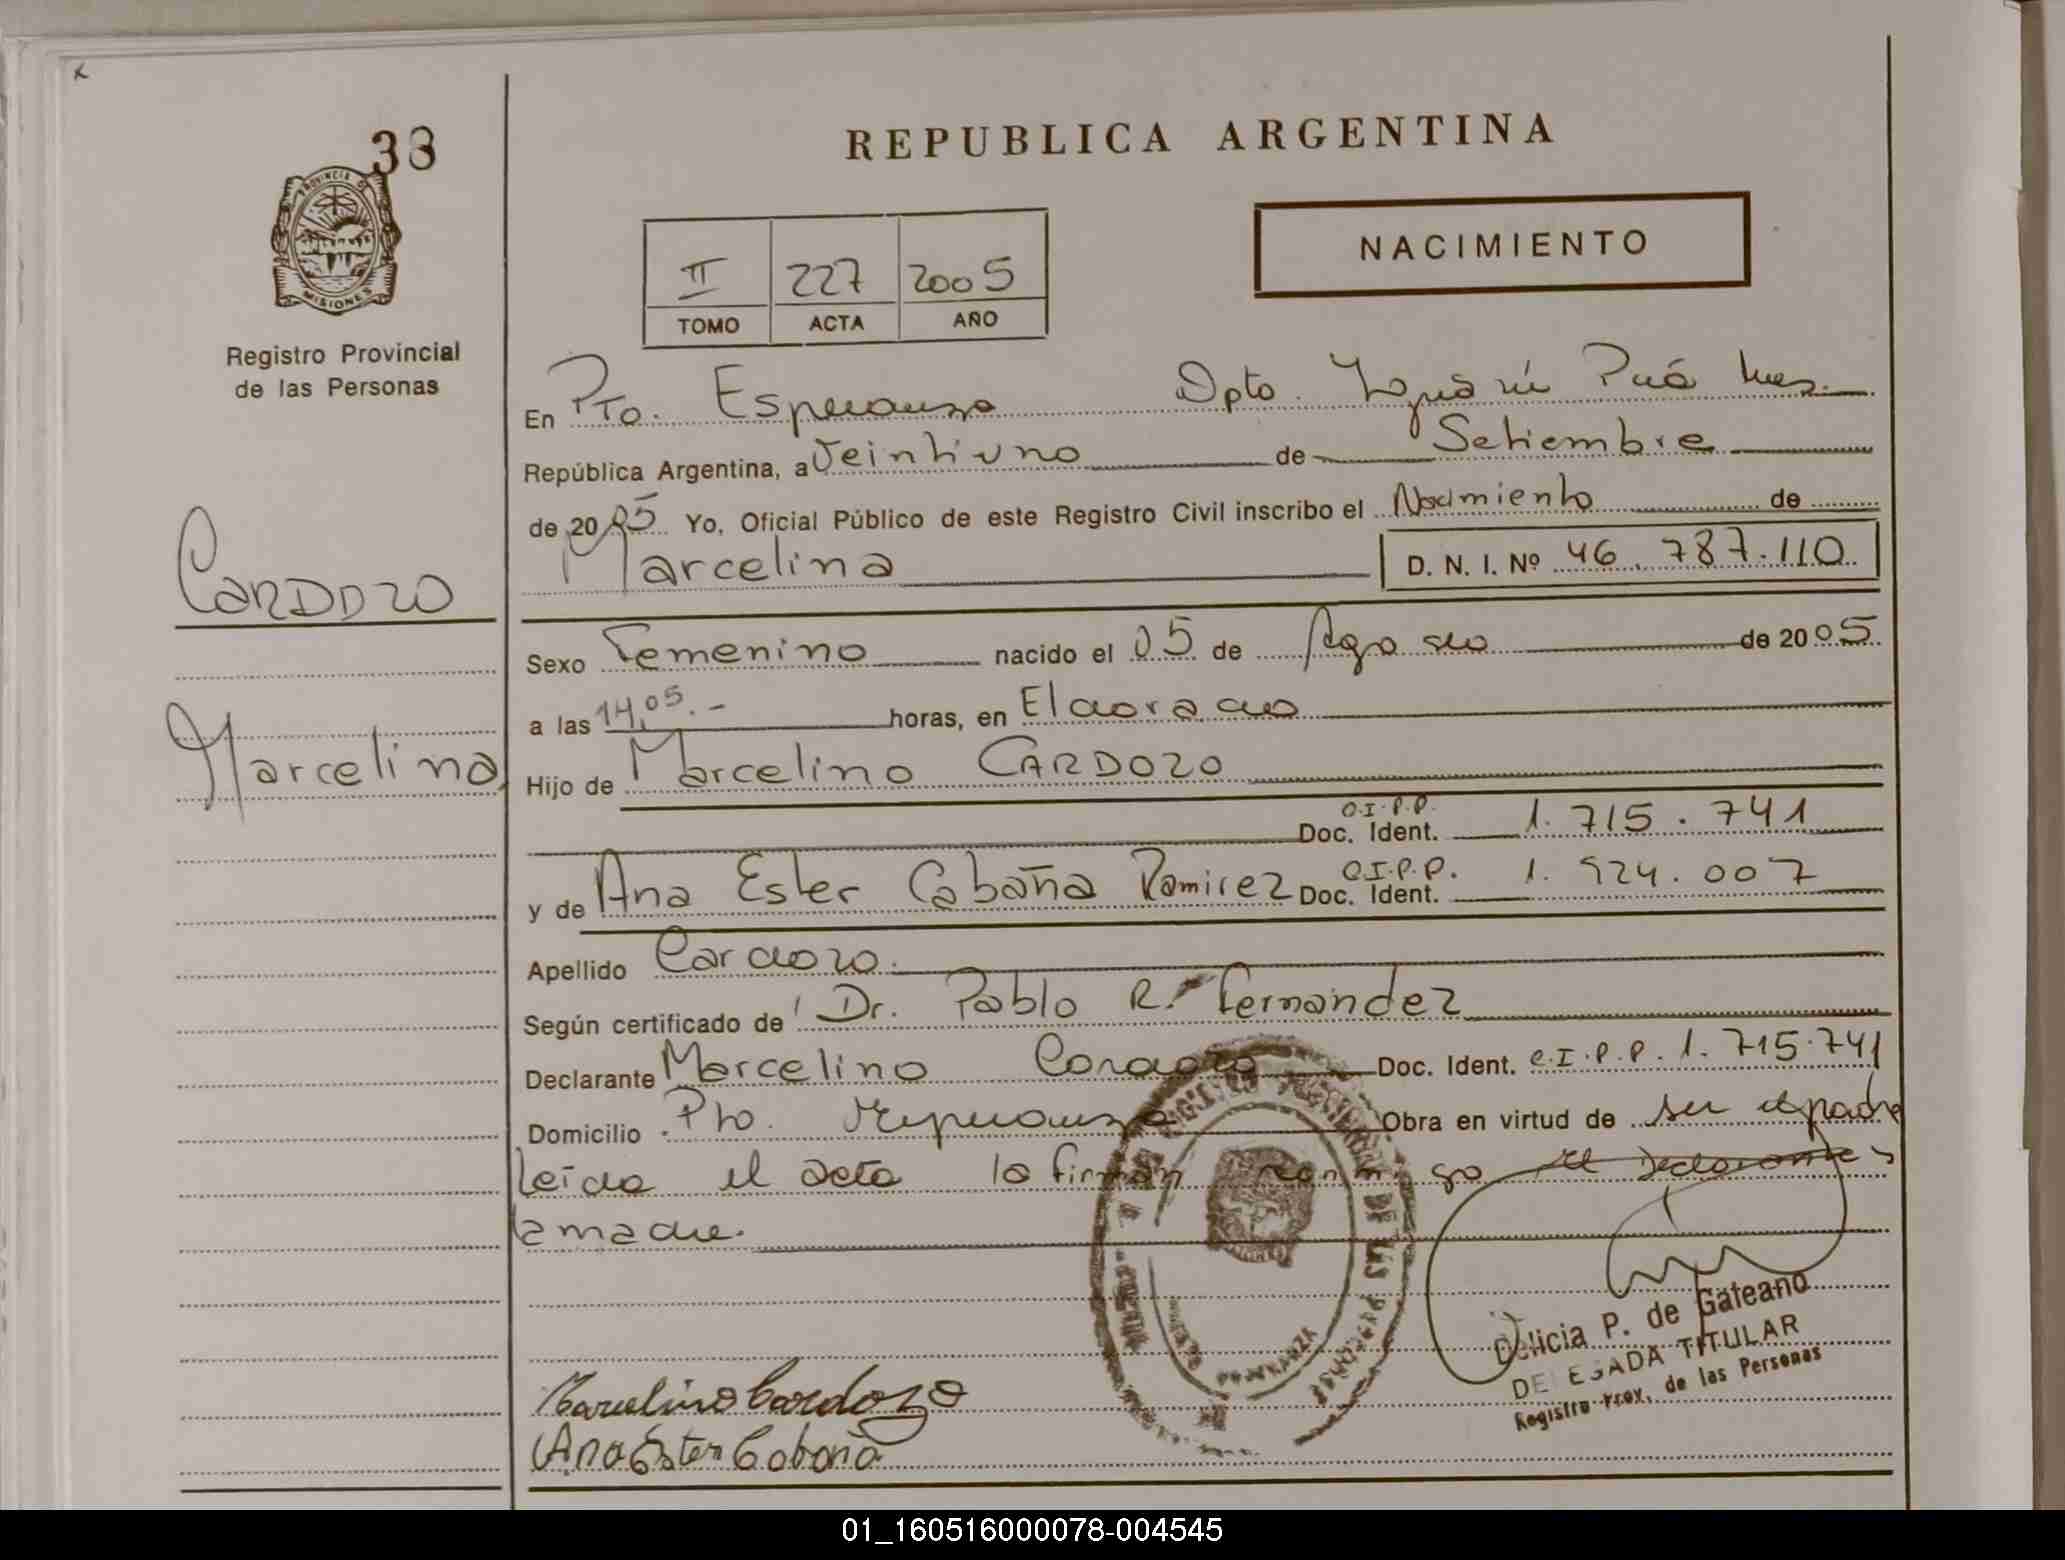 38
PROVINCIA DE
MISIONES
Registro Provincial
de las Personas
CARDOZO
Marcelina
REPUBLICA ARGENTINA
NACIMIENTO
II 227 2005
TOMO ACTA AÑO
En Pto. Esperanza Dpto. Iguazú Pcia Mnes.
República Argentina, a Veintiuno de Setiembre
de 2005 Yo, Oficial Público de este Registro Civil inscribo el Nacimiento de
Marcelina D. N. I. Nº 46.787.110
Sexo Femenino nacido el 05 de Agosto de 2005
a las 14,05.- horas, en Eldorado
Hijo de Marcelino CARDOZO
C.I.P.P.
Doc. Ident. 1.715.741
y de Ana Ester Cabaña Ramirez C.I.P.P. Doc. Ident. 1.924.007
Apellido Cardozo.
Según certificado de Dr. Pablo R. Fernandez
Declarante Marcelino Cardozo Doc. Ident. C.I.P.P. 1.715.741
Domicilio Pto. Esperanza Obra en virtud de ser el padre
Leída el acta la firman conmigo el declarante y
la madre.
Marcelino Cardozo
Ana Ester Cabaña
Delicia P. de Gateano
DELEGADA TITULAR
Registro Prov. de las Personas
01_160516000078-004545